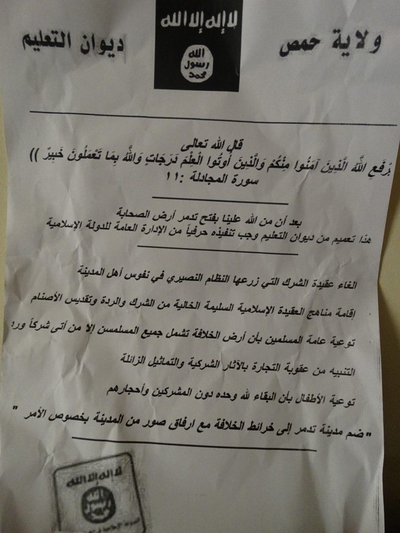 ولاية حمص
لا إله إلا الله
الله
رسول
محمد
ديوان التعليم
قال الله تعالى
يَرْفَعِ اللَّهُ الَّذِينَ آمَنُوا مِنْكُمْ وَالَّذِينَ أُوتُوا الْعِلْمَ دَرَجَاتٍ وَاللَّهُ بِمَا تَعْمَلُونَ خَبِيرٌ ))
سورة المجادلة :١١
بعد أن من الله علينا بفتح تدمر أرض الصحابة
هذا تعميم من ديوان التعليم وجب تنفيذه حرفياً من الإدارة العامة للدولة الإسلامية
الغاء عقيدة الشرك التي زرعها النظام النصيري في نفوس أهل المدينة
اقامة مناهج العقيدة الإسلامية السليمة الخالية من الشرك والردة وتقديس الأصنام
توعية عامة المسلمين بأن أرض الخلافة تشمل جميع المسلمسن إلا من أتى شركاً ورد
التنبيه من عقوبة التجارة بالآثار الشركية والتماثيل الزائلة
توعية الأطفال بأن البقاء لله وحده دون المشركين وأحجارهم
" ضم مدينة تدمر إلى خرائط الخلافة مع ارفاق صور من المدينة بخصوص الأمر "
لا إله إلا الله
الله
رسول